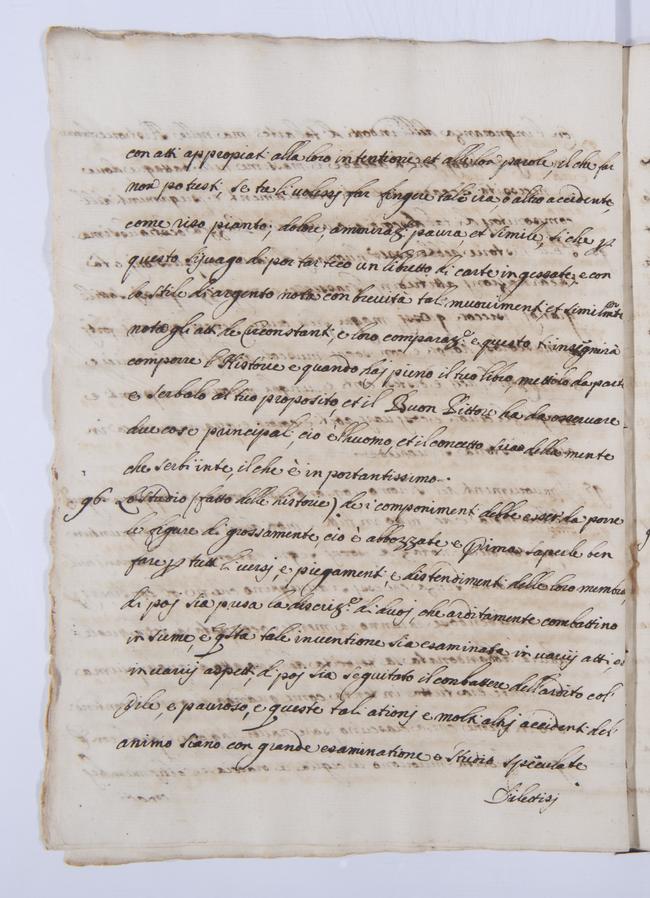 con atti appropiati alla loro intentione, et alle lor parole, il che far
non potresti, se tu li volessj far fingere tale ira o altro accidente,
come riso pianto, dolore, amirazº, paura, et simile, si che p
questo sij vago di portar teco un libretto di carte ingessate, e con
lo stile di argento nota con brevità tali muovimenti, et similmte
nota gli atti de circonstanti, e loro comparazº, e questo ti insegnirà
comporre l'Historie e quando haj pieno il tuo libro, mettilo da parte
e serbalo al tuo proposito, et il Buon Pittore ha da osservare
due cose principali, cio è l'huomo, et il concetto suo della mente
che serbi in te, il che è in portantissimo.
96. Lo Studio (fatto delle historie) de i componimenti debbe esser da porre
le figure di grossamente cio è abbozzate e prima saperle ben
fare p tutti li versj, e piegamenti, e distendimenti delle loro membra,
di poj sia presa la discrizº di duoj, che arditamente combattino
in sieme, e qsta tale inventione sia esaminata in varij atti, et
in varij aspetti di poj sia seguitato il combattere dell'ardito col
Vile, e pauroso, e queste tali ationj e molti altrj accidenti del
animo siano con grande esaminatione e Studio speculate
Dilettisj